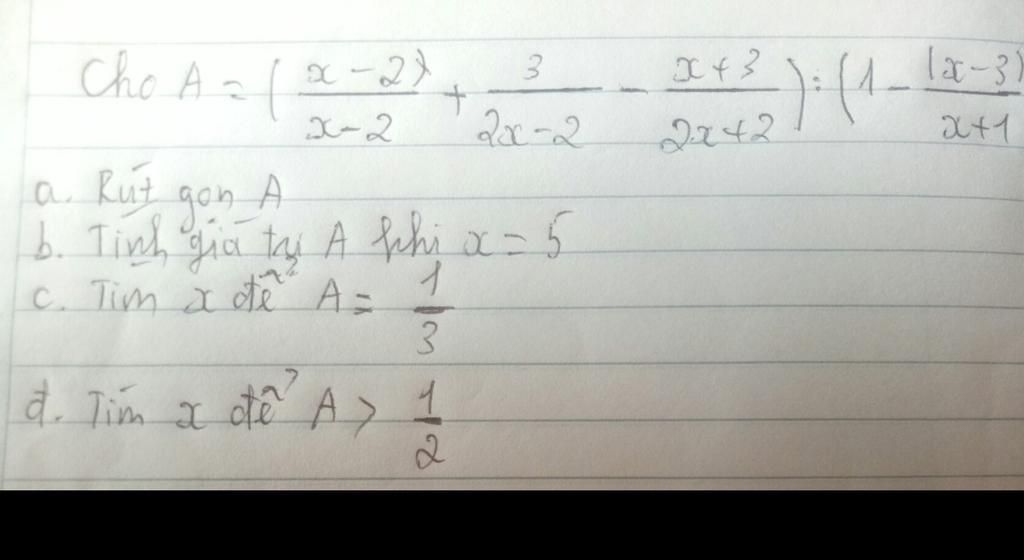 Cho A = ( \frac{x-2)}{x-2} + \frac{3}{2x-2} - \frac{x+3}{2x+2} ) : ( 1 - \frac{(x-3)}{x+1}
a. Rút gọn A
b. Tính giá trị A khi x = 5
c. Tìm x để A = \frac{1}{3}
d. Tìm x để A > \frac{1}{2}